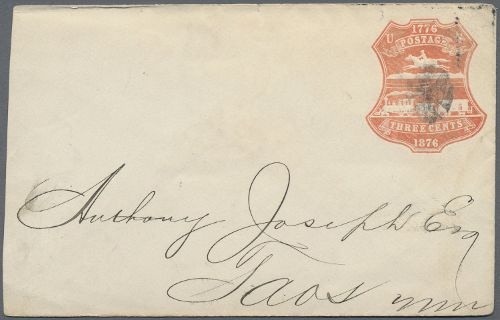 1776
U S
POSTAGE
THREE CENTS
1876
Anthony Joseph Esq
Taos NM